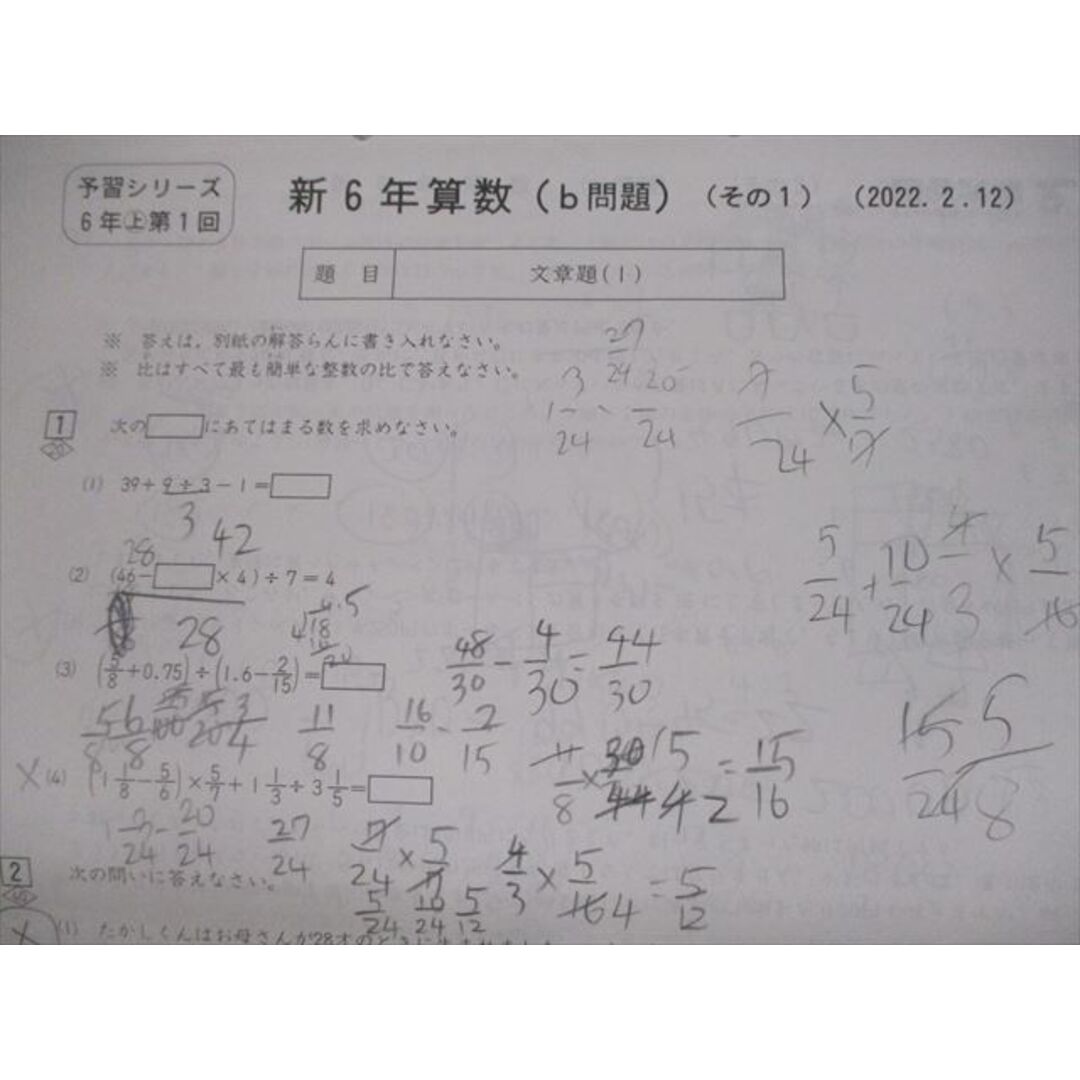 予習シリーズ
6年㊤第1回
新6年算数(b問題) (その1) (2022.2.12)
題 目 文章題(1)
※ 答えは,別紙の解答らんに書き入れなさい。
※ 比はすべて最も簡単な整数の比で答えなさい。
27/24
1 3/24 - 20/24
7/24 × 5/7
1 次の□にあてはまる数を求めなさい。
20
(1) 39+9÷3-1=□
3 42
28
(2) (46-□×4)÷7=4
28
4.5
4 18
16
20
5/24 + 10/24
4/3 × 5/16
(3) (5/8+0.75)÷(1.6-2/15)=□
48/30 - 4/30 = 44/30
5/8 6/8 3/4 11/8 16/10 - 2/15
11/8 × 30/44 15 2 = 15/16
15/24 5/8
× (4) (1 1/8 - 5/6)×5/7+1 1/3÷3 1/5=□
1 3/24 - 20/24 27/24 7/24 × 5/7 4/3 × 5/16 4 = 5/12
5/24 10/24 5/12
2 次の問いに答えなさい。
× (1) たかしくんはお母さんが28才のときに生まれました